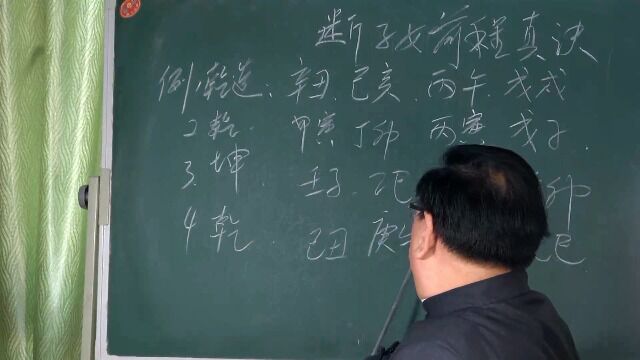 断子女前程真诀
例1.乾造:辛丑.己亥.丙午.戊戌
2.乾.甲寅丁卯丙寅.戊子.
3.坤.壬子.巳卯
4.乾.己丑庚巳